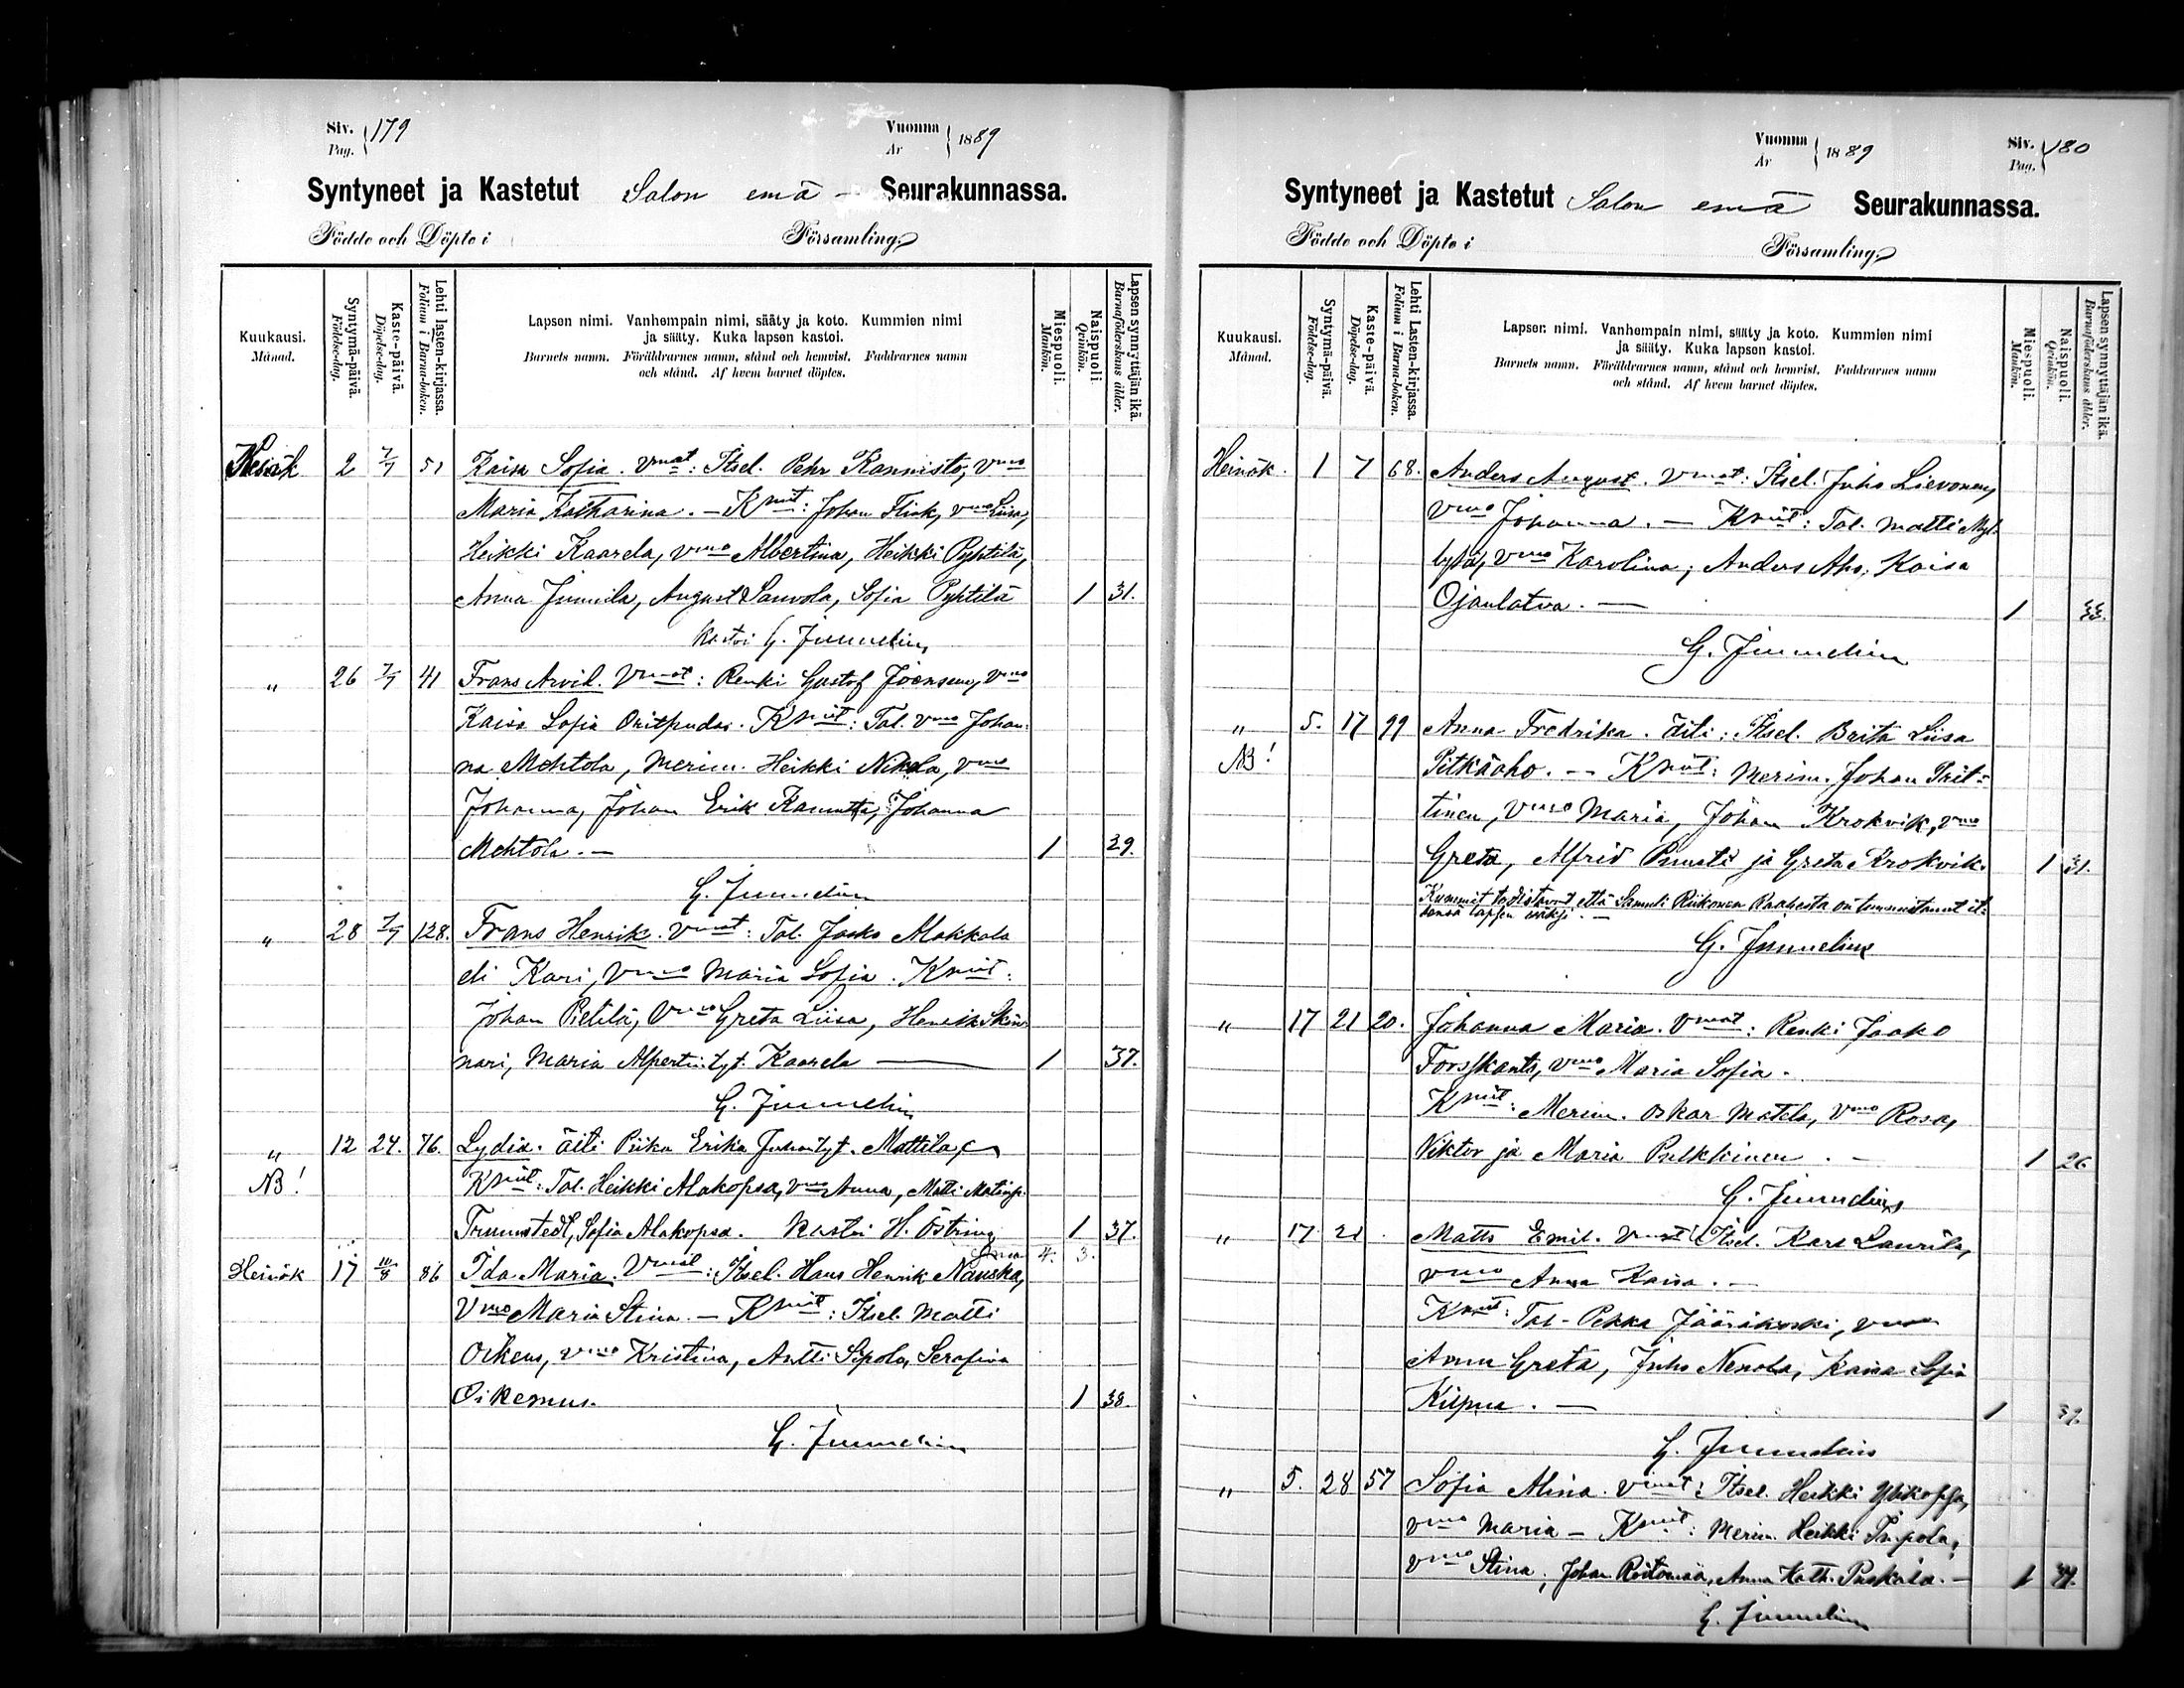 Siv. Pag. 179
Vuonna År 1889
Syntyneet ja Kastetut Salon emä - Seurakunnassa.
Födde och Döpte i Församling.
Kuukausi. Månad.
Syntymä-päivä. Födelse-dag.
Kaste-päivä. Döpelse-dag.
Lehti lasten-kirjassa. Folium i Barna-boken.
Lapsen nimi. Vanhempain nimi, sääty ja koto. Kummien nimi
ja sääty. Kuka lapsen kastoi.
Barnets namn. Föräldrarnes namn, stånd och hemvist. Faddrarnes namn
och stånd. Af hvem barnet döptes.
Miespuoli. Mankön.
Naispuoli. Qvinkön.
Lapsen synnyttäjän ikä. Barnaföderskans ålder.
Kesäk 2 7/7 51 Kaisa Sofia. Vmat: Itsel. Pehr Kannisto, Vmo
Maria Katharina. - Kmit: Johan Flink, vmo Liisa,
Heikki Kaarela, vmo Albertina, Heikki Pyhtilä,
Anna Junnila, August Sauvola, Sofia Pyhtilä 1 31.
Kastoi G. Junnelius
" 26 7/7 41 Frans Arvid. Vmat: Renki Gustof Joensuu, Vmo
Kaisa Sofia Onitpudas. Kmit: Tal. vmo Johan-
na Mehtola, Merim. Heikki Nikola, vmo
Johanna, Johan Erik Kanutta, Johanna
Mehtola. - 1 29.
G. Junnelius
" 28 7/7 128. Frans Henrik. Vmat: Tal. Jaako Makkala
eli Kari, Vmo Maria Sofia. Kmit:
Johan Pietilä, Vmo Greta Liisa, Henrik Skin-
nari, Maria Alpertin tyt. Kaarela 1 37.
G. Junnelius
" 12 24. 76. Lydia. äiti Piika Erika Juhontyt. Mattila,
NB! Kmit: Tal. Heikki Alakopsa, vmo Anna, Matti Matinp.
Trumstedt, Sofia Alakopsa. Kastoi H. Östring 1 37.
Suma 4. 3.
Heinäk 17 10/8 86 Ida Maria. Vmat: Itsel. Hans Henrik Nauska,
Vmo Maria Stina. - Kmit: Itsel. Matti
Oikenus, vmo Kristina, Antti Sipola, Serafina
Oikemus. 1 38.
G. Junnelius
Vuonna År 1889
Siv. Pag. 180
Syntyneet ja Kastetut Salon emä Seurakunnassa.
Födde och Döpte i Församling.
Kuukausi. Månad.
Syntymä-päivä. Födelse-dag.
Kaste-päivä. Döpelse-dag.
Lehti Lasten-kirjassa. Folium i Barna-boken.
Lapsen nimi. Vanhempain nimi, sääty ja koto. Kummien nimi
ja sääty. Kuka lapsen kastoi.
Barnets namn. Föräldrarnes namn, stånd och hemvist. Faddrarnes namn
och stånd. Af hvem barnet döptes.
Miespuoli. Mankön.
Naispuoli. Qvinkön.
Lapsen synnyttäjän ikä. Barnaföderskans ålder.
Heinäk. 1 7 68. Anders August. Vmat: Itsel. Juho Lievonen,
Vmo Johanna. - Kmit: Tal. Matti Myl-
lylä, vmo Karolina; Anders Aho, Kaisa
Ojanlatva. - 1 33.
G. Junnelius
" 5. 17 99 Anna Fredrika. äiti: Itsel. Brita Liisa
NB! Pitkäaho. - Kmit: Merim. Johan Prit-
tinen, vmo Maria, Johan Krokvik, vmo
Greta, Alfrid Ruusti ja Greta Krokvik. 1 31.
Kummit todistavat että Samuli Riikonen Raahesta on tunnustanut it-
sensä lapsen isäksi. -
G. Junnelius
" 17 21 20. Johanna Maria. Vmat: Renki Jaako
Forsskants, vmo Maria Sofia.
Kmit: Merim. Oskar Matela, vmo Rosa,
Viktor ja Maria Pulkkinen. - 1 26
G. Junnelius
" 17 21 Matts Emil. Vmat: Itsel. Karl Laurila,
vmo Anna Kaisa. -
Kmit: Tal. Pekka Jääräkoski, vmo
Anna Greta, Juho Nenola, Kaisa Sofia
Kiipuu. - 1 37.
G. Junnelius
" 5. 28 57 Sofia Alina. Vmat: Itsel. Heikki Ylikopsa,
vmo Maria - Kmit: Merim. Heikki Impola,
vmo Stina, Johan Roitomaa, Anna Kath. Puskala. - 1 44.
G. Junnelius